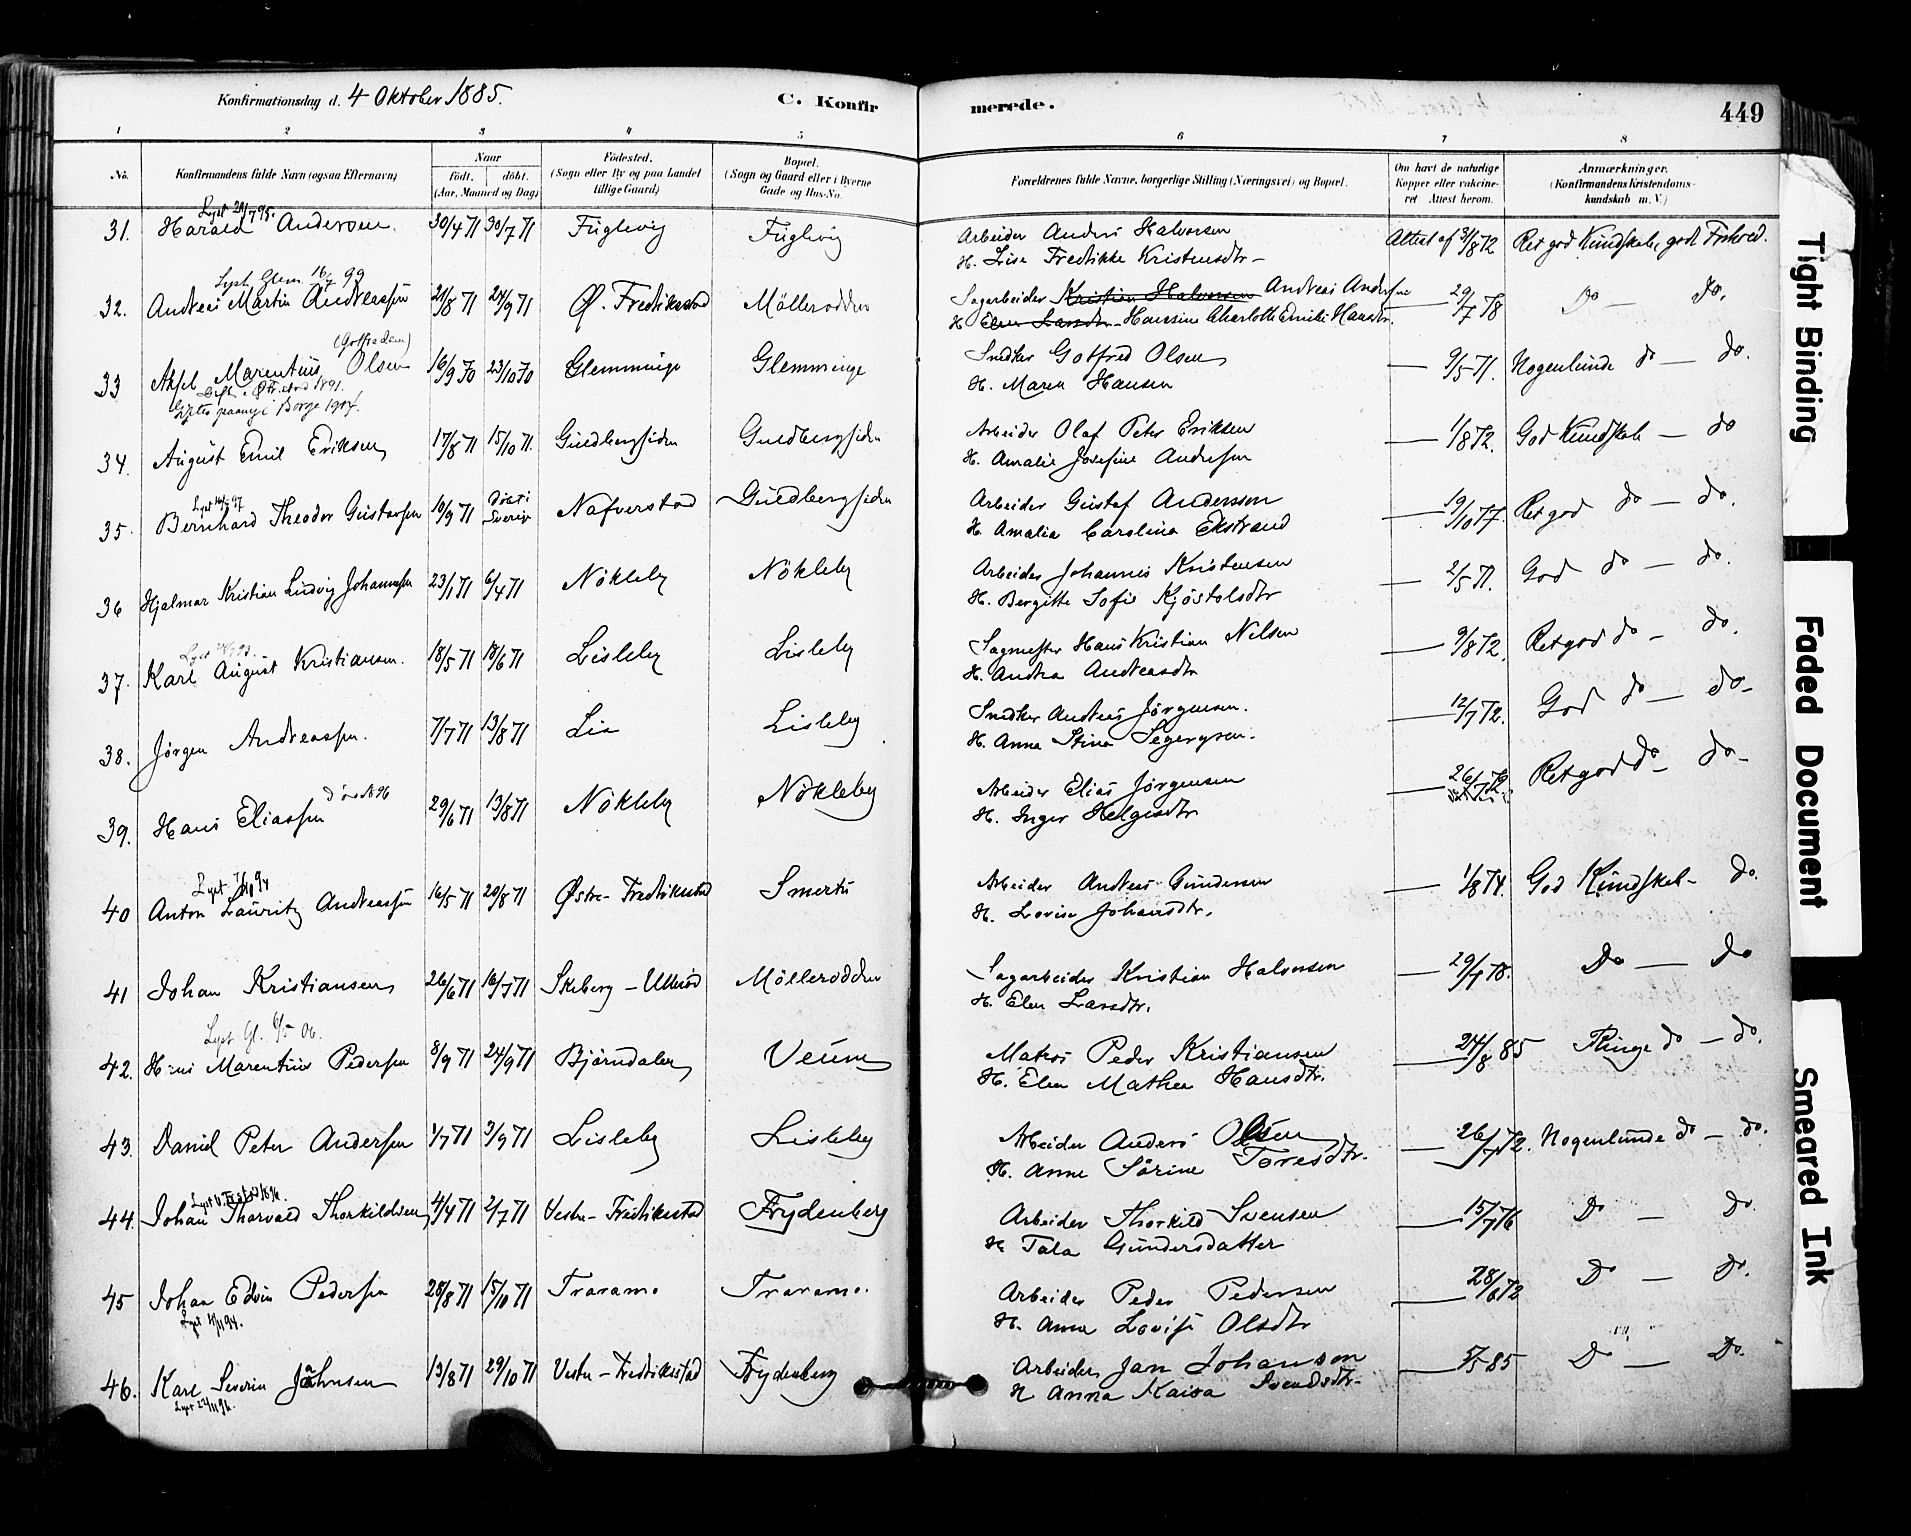 Konfirmationsdag d. 4 Oktober 1885.
C. Konfirmerede.
449
1 2 3 4 5 6 7 8
No.
Konfirmandens fulde Navn (ogsaa Efternavn)
Naar
födt. döbt.
(Aar, Maaned og Dag)
Födested.
(Sogn eller By og paa Landet
tillige Gaard)
Bopæl.
(Sogn og Gaard eller i Byerne
Gade og Hus-No.
Forældrenes fulde Navne, borgerlige Stilling (Næringsvei) og Bopæl.
Om havt de naturlige
Kopper eller vakcine-
ret Attest herom.
Anmærkninger.
(Konfirmandens Kristendoms-
kundskab m. V.)
31. Harald Andersen. 30/4 71 30/7 71 Fuglevig Fuglevig Arbeider Anders Halvorsen Attest af 31/8 72 Ret god Kundskab, god Forhold.
H. Lise Fredrikke Kristensdtr
Lyst Glem. 16/7 99
32. Andreas Martin Andreassen 21/8 71 24/9 71 Ø. Fredrikstad Möllerodden Sagarbeider Kristian Halvorsen Andreas Andersen 29/7 78 Do — Do.
H. Elen Larsdtr. Hansine Charlotte Emilie Hansdtr.
(Gotfredsen)
33 Aksel Marentius Olsen 16/9 70 23/10 70 Glemminge Glemminge Snedker Gotfred Olsen 9/5 71. Nogenlunde do — do.
H. Maren Hansen
Gift i Ø. Fr.stad 1891.
Giftes paany i Borge 1904.
34. August Emil Eriksen 17/8 71 15/10 71. Guldbergsiden Guldbergsiden Arbeider Olaf Peter Eriksen 1/8 72. God Kundskab — do
H. Amalie Josefine Andresen
35. Bernhard Theodor Gustavsen 10/9 71 Döbt i Sverig Nafverstad Guldbergsiden Arbeider Gustaf Andersson 19/10 77. Ret god do — do.
H. Amalia Carolina Ekstrand
36 Hjalmar Kristian Ludvig Johannesen 23/1 71 6/4 71 Nökleby Nökleby Arbeider Johannes Kristensen 2/5 71. God do — do.
H. Bergitte Sofie Kjöstolsdtr
37. Karl August Kristiansen. 18/5 71 18/6 71 Lisleby Lisleby Sagmester Hans Kristian Nilsen 9/8 72. Ret god do — do.
H. Andrea Andreasdtr
38. Jörgen Andreassen. 7/7 71 13/8 71 Lie Lisleby Snedker Andreas Jörgensen. 12/7 72. God do — do
H. Anna Stina
död 1896
39. Hans Eliassen 29/6 71 13/8 71 Nökleby Nökleby Arbeider Elias Jörgensen 26/7 72. Ret god do — do
H. Inger Helgesdtr
40 Anton Lauritz Andreassen 16/5 71 20/8 71 Østre-Fredrikstad Smerte Arbeider Andreas Gundersen 1/8 74. God Kundskab — do.
H. Lovise Johansdtr.
41 Johan Kristiansen 26/6 71 16/7 71 Skeberg — Ullerød Mölleroddden Sagarbeider Kristian Halvorsen 29/7 78. Do — Do
H. Elen Larsdtr.
Lyst Gl. 6/5 06.
42. Hans Marentius Pedersen 8/9 71 24/9 71 Bjørndalen Veum Matros Peder Kristiansen 24/8 85 Ringe do — do.
H. Elen Mathea Hansdtr.
43. Daniel Peter Andersen 1/7 71 3/9 71 Lisleby Lisleby Arbeider Anders Olsen 26/7 72. Nogenlunde do — do.
H. Anne Sörine Toresdtr.
44. Johan Thorvald Thorkildsen 4/4 71 2/7 71 Vestre-Fredrikstad Frydenberg Arbeider Thorkild Svensen 15/7 76 Do — Do.
H. Tala Gundersdatter
45 Johan Edvin Pedersen 28/8 71 15/10 71 Traramo Traramo. Arbeider Peder Pedersen 28/6 72 Do — Do.
H. Anna Lovise Olsdtr
46. Karl Severin Jahnsen 13/8 71 29/10 71 Vestre-Fredrikstad Frydenberg Arbeider Jan Johanson 5/5 85 Do — Do.
H. Anna Kaisa Svendsdtr.
Lyst 22/11 96.
Tight Binding
Faded Document
Smeared Ink